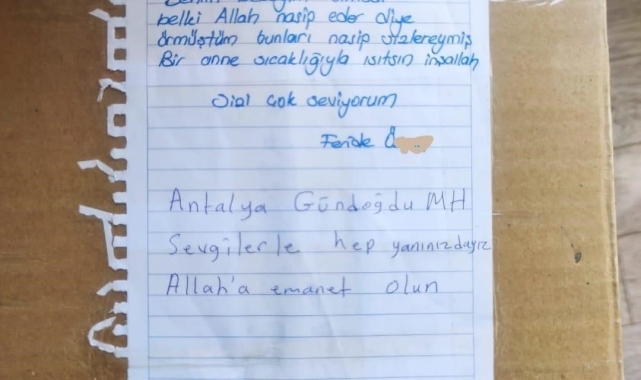 belki Allah nasip eder diye
örmüştüm bunları nasip sizlereymiş
Bir anne sıcaklığıyla ısıtsın inşallah
Sizi çok seviyorum
Feride Ö
Antalya Gündoğdu MH
Sevgilerle hep yanınızdayız
Allah'a emanet olun